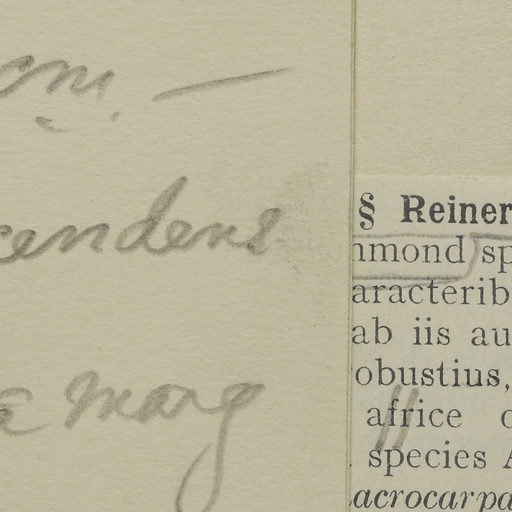 cm. —
cendens
a marg
§ Reiner
mmond sp
aracterib
ab iis au
obustius,
africe c
species A
acrocarpa